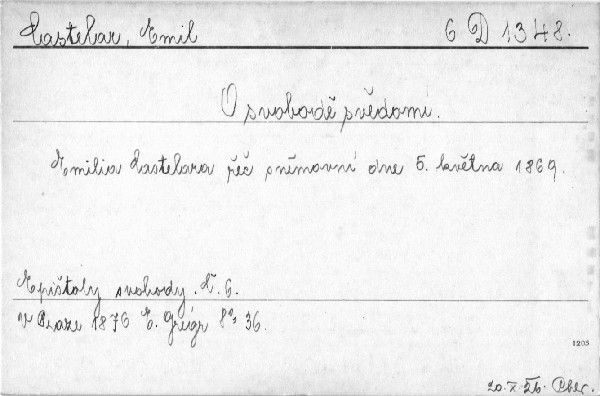 Castelar, Emil 6 D 1348.
O svobodě svědomí.
Emilia Castelara řeč sněmovní dne 5. května 1869.
Epištoly svobody. Č. 6.
v Praze 1876 E. Grégr 8° 36.
1205
20. X. 26.